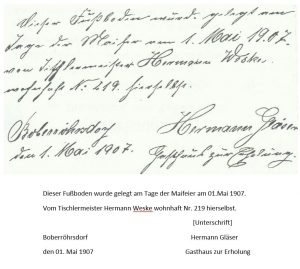 Dieser Fußboden wurde gelegt am
Tage der Maifeier am 1. Mai 1907.
vom Tischlermeister Hermann Weske.
wohnhaft N. 219. hierselbst.
Boberröhrsdorf Hermann Gläser
den 1. Mai 1907. Gasthaus zur Erholung.
Dieser Fußboden wurde gelegt am Tage der Maifeier am 01.Mai 1907.
Vom Tischlermeister Hermann Weske wohnhaft Nr. 219 hierselbst.
[Unterschrift]
Boberröhrsdorf Hermann Gläser
den 01. Mai 1907 Gasthaus zur Erholung